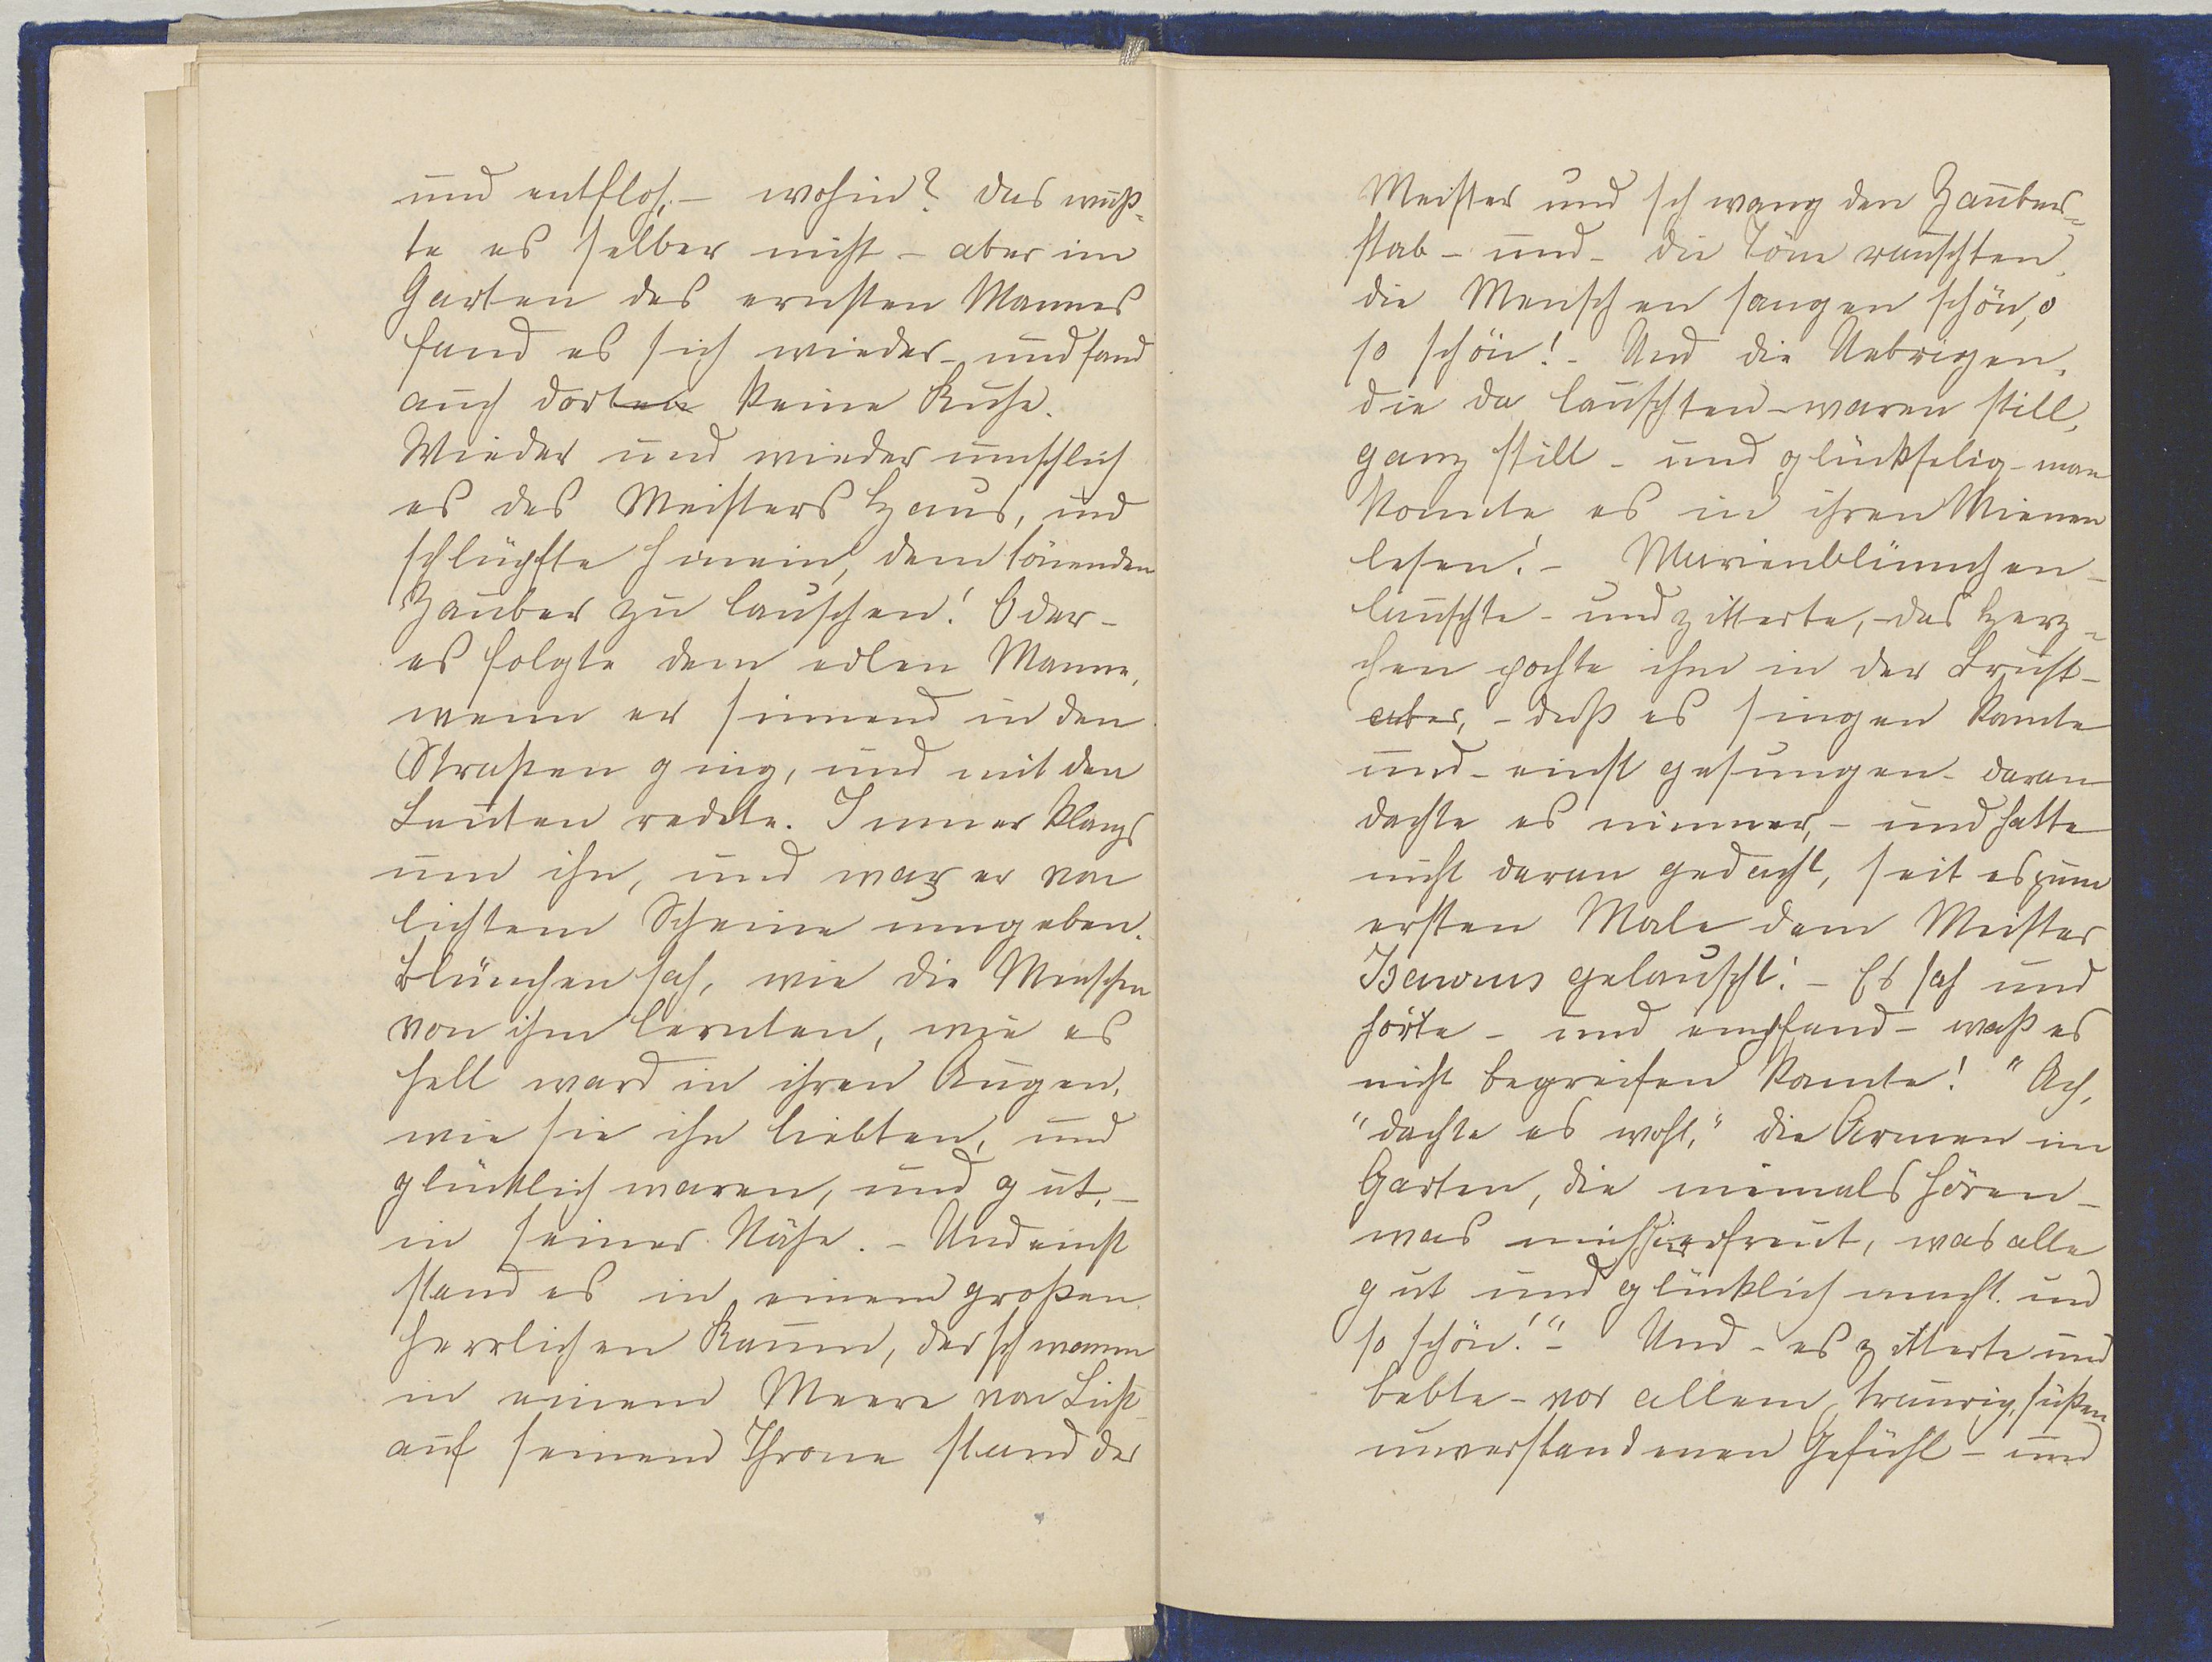 und entfloh, – wohin? Das wuß-
te es selber nicht – aber im
Garten des ernsten Mannes
fand es sich wieder – und fand
auch dorten keine Ruhe.
Wieder und wieder umschlich
es des Meisters Haus, und
schlüpfte hinein, dem tönenden
Zauber zu lauschen! Oder –
es folgte dem edlen Manne,
wenn er sinnend in den
Straßen ging, und mit den
Leuten redete. Immer klangs
um ihn, und war er von
lichtem Scheine umgeben.
Blümchen sah, wie die Menschen
von ihm lernten, wie es
hell ward in ihren Augen,
wie sie ihn liebten, und
glücklich waren, und gut, –
in seiner Nähe. – Und einst
stand es in einem großen
herrlichen Raum, der schwamm
in einem Meere von Licht –
auf seinem Throne stand der
Meister und schwang den Zauber-
stab – und – die Töne rauschten,
die Menschen sangen schön, o
so schön! – Und die Uebrigen,
die da lauschten – waren still,
ganz still – und glückselig – man
konnte es in ihren Mienen
lesen! – Marienblümchen –
lauschte – und zitterte, – das Herz-
chen pochte ihm in der Brust –
aber, – daß es singen konnte
und – einst gesungen – daran
dachte es nimmer, – und hatte
nicht daran gedacht, seit es zum
ersten Male dem Meister
gelauscht! – Es sah und
hörte – und empfand – waß es
nicht begreifen konnte! "Ach,
"dachte es wohl," die Armen im
Garten, die niemals hören –
was mich hier erfreut, was alle
gut und glücklich macht. und
so schön!" – Und – es zitterte und
bebte – vor allem traurig, süßen
unverstandenen Gefühl – und